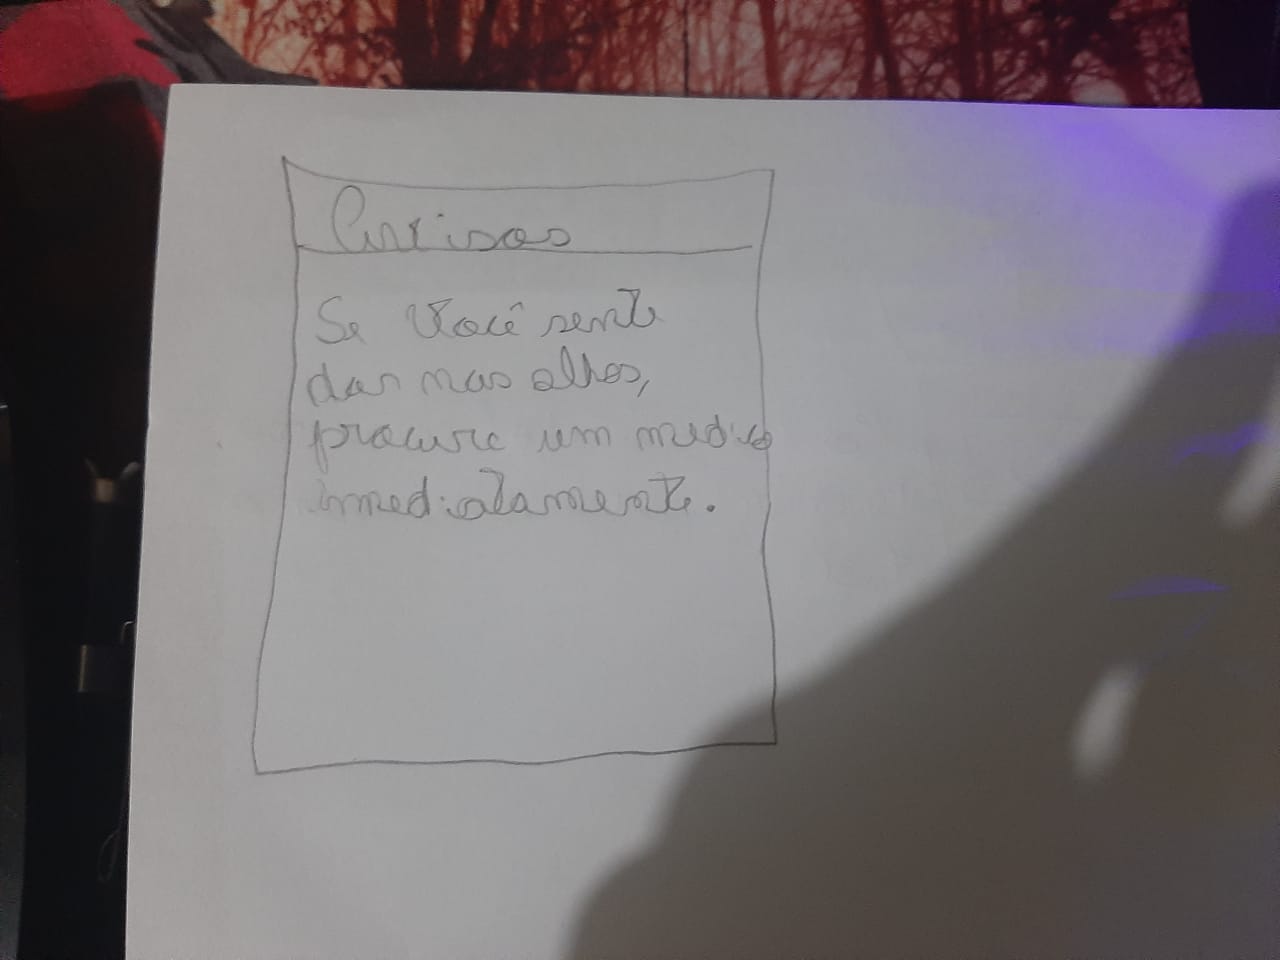 Avisos
Se você sente
dor nos olhos,
procure um medico
imediatamente.